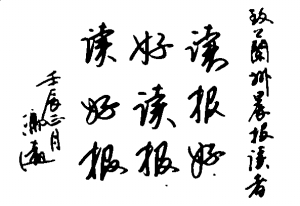 致蘭州晨报读者
读报好
好读报
读好报
壬辰三月